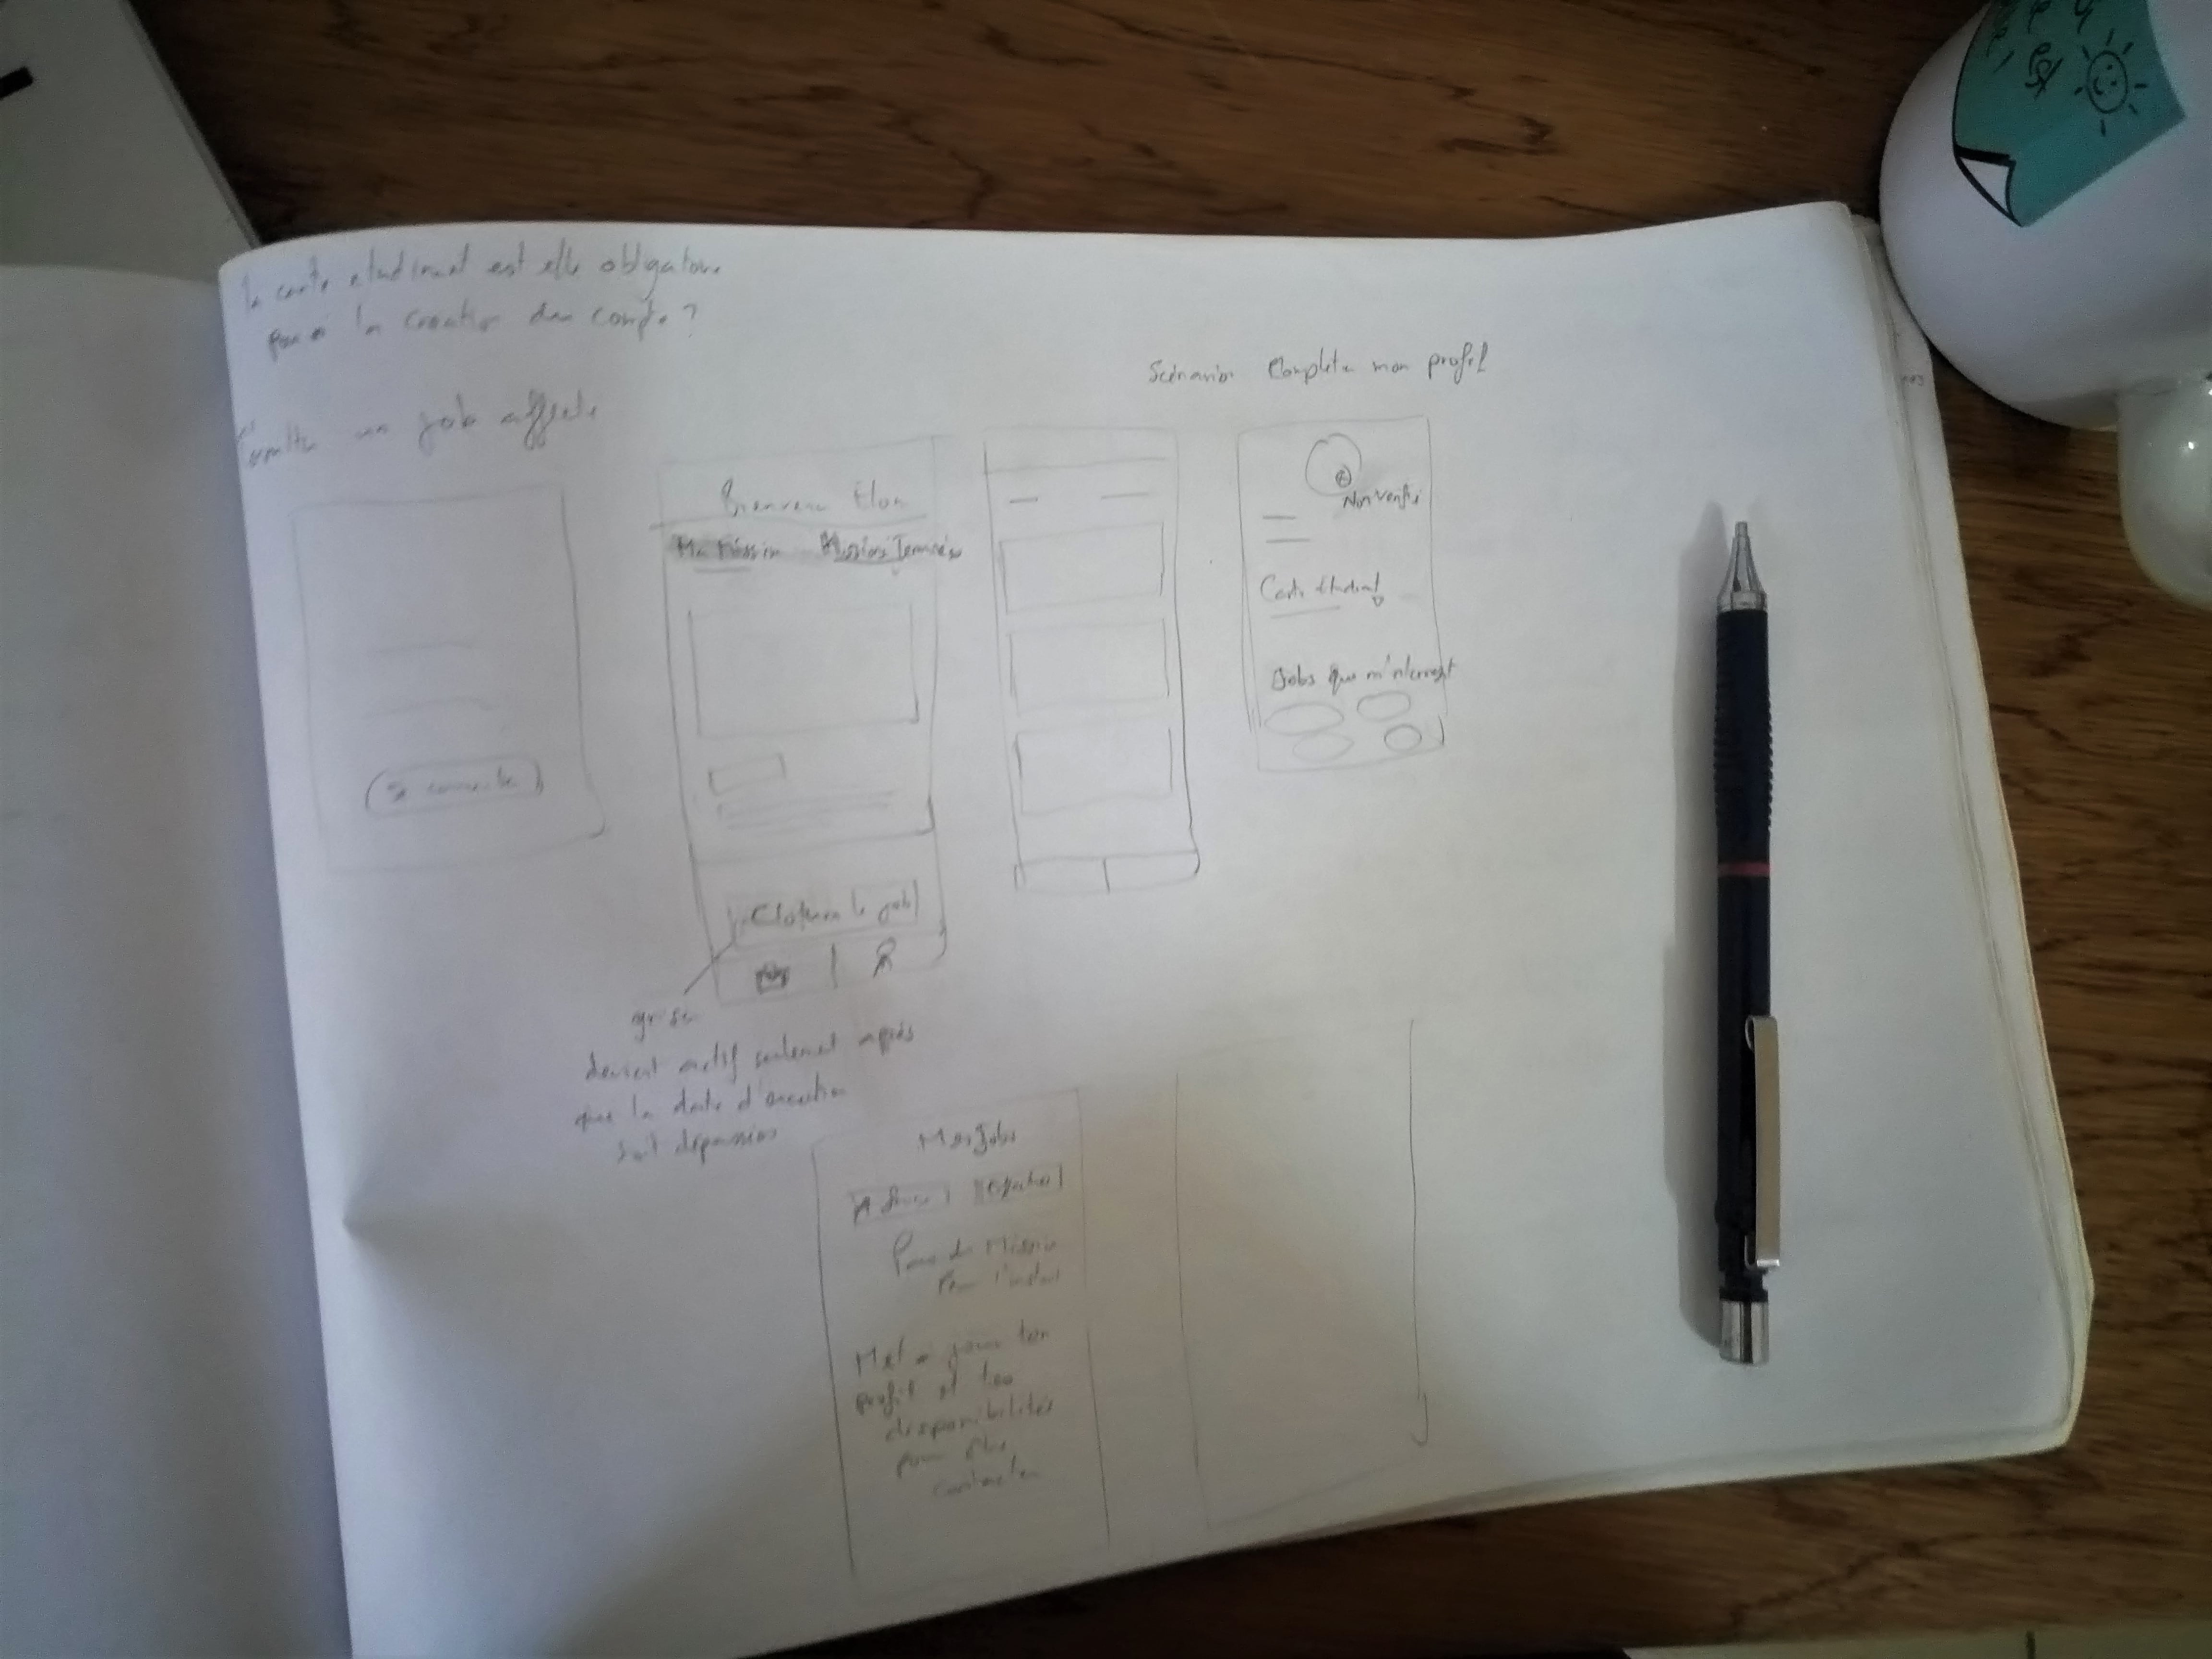 la carte etudiant est elle obligatoire
pour la creation d'un compte ?
un job affecté
Scénarion Completer mon profil
Se connecter
Bienvenu Elon
Ma Mission Missions Terminées
Cloturer le job
grisé
devient actif seulement après
que la date d'execution
soit dépassée
Non Vérifié
Carte étudiant
Jobs que m'interesst
Mes Jobs
Pas de Mission
Pour l'instant
Met a jour ton
profil et tes
disponibilités
pour être
contacter